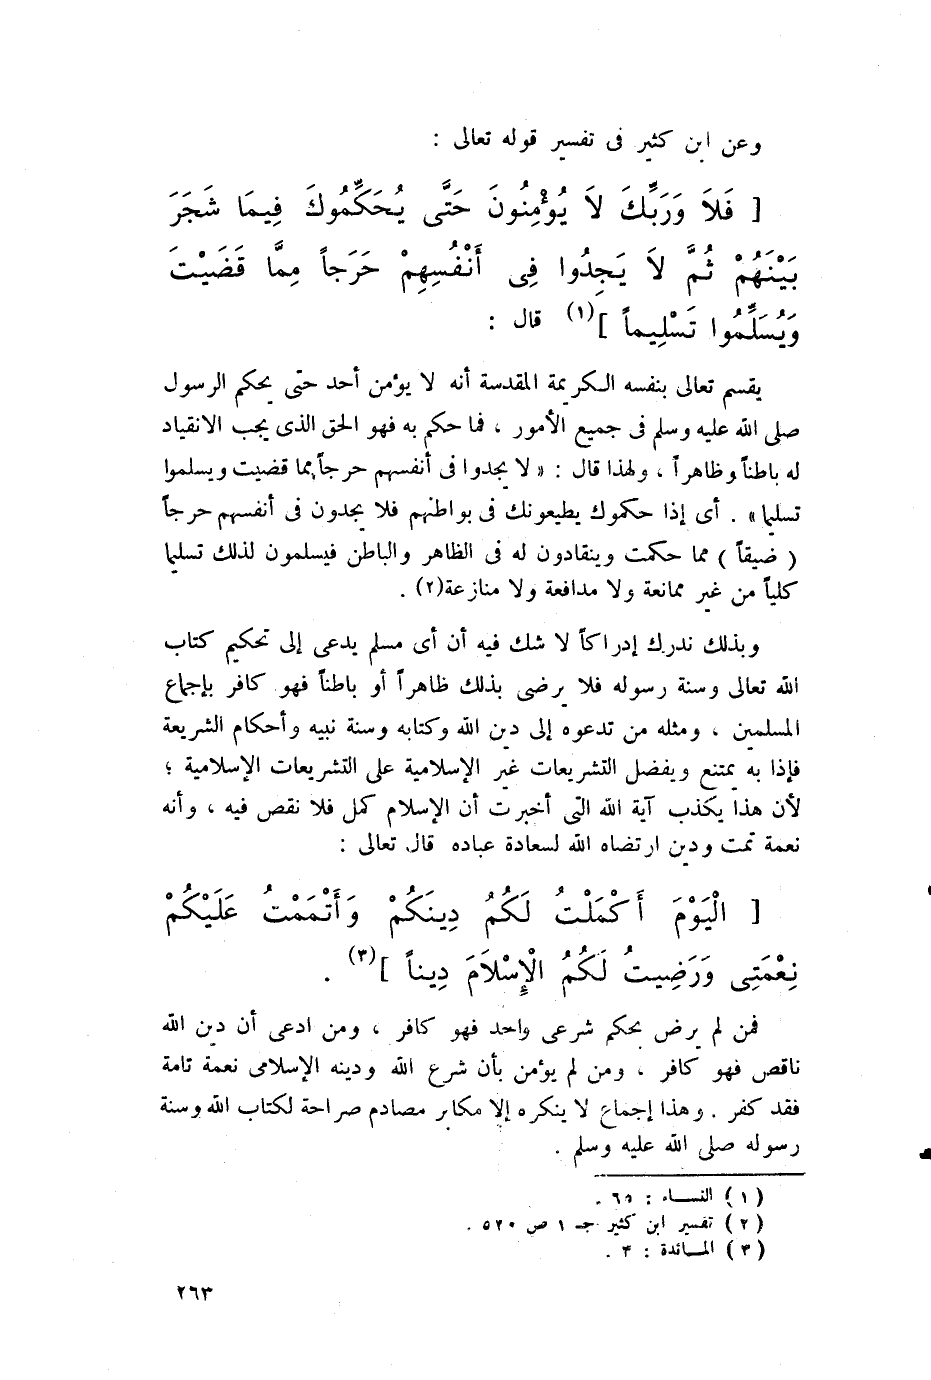 وعن ابن كثير فى تفسير قوله تعالى :
[ فَلاَ وَرَبِّكَ لاَ يُؤْمِنُونَ حَتَّى يُحَكِّمُوكَ فِيمَا شَجَرَ
بَيْنَهُمْ ثُمَّ لاَ يَجِدُوا فِى أَنْفُسِهِمْ حَرَجاً مِمَّا قَضَيْتَ
وَيُسَلِّمُوا تَسْلِيماً ](١) قال :
يقسم تعالى بنفسه الكريمة المقدسة أنه لا يؤمن أحد حتى يحكم الرسول
صلى الله عليه وسلم فى جميع الأمور ، فما حكم به فهو الحق الذى يجب الانقياد
له باطناً وظاهراً ، ولهذا قال : « لا يجدوا فى أنفسهم حرجاً مما قضيت ويسلموا
تسليما » . أى إذا حكموك يطيعونك فى بواطنهم فلا يجدون فى أنفسهم حرجاً
( ضيقاً ) مما حكمت وينقادون له فى الظاهر والباطن فيسلمون لذلك تسليما
كلياً من غير ممانعة ولا مدافعة ولا منازعة(٢) .
وبذلك ندرك إدراكاً لا شك فيه أن أى مسلم يدعى إلى تحكيم كتاب
الله تعالى وسنة رسوله فلا يرضى بذلك ظاهراً أو باطناً فهو كافر بإجماع
المسلمين ، ومثله من تدعوه إلى دين الله وكتابه وسنة نبيه وأحكام الشريعة
فإذا به يمتنع ويفضل التشريعات غير الإسلامية على التشريعات الإسلامية ؛
لأن هذا يكذب آية الله التى أخبرت أن الإسلام كمل فلا نقص فيه ، وأنه
نعمة تمت ودين ارتضاه الله لسعادة عباده قال تعالى :
[ الْيَوْمَ أَكْمَلْتُ لَكُمْ دِينَكُمْ وَأَتْمَمْتُ عَلَيْكُمْ
نِعْمَتِى وَرَضِيتُ لَكُمُ الْإِسْلاَمَ دِيناً ](٣) .
فمن لم يرض بحكم شرعى واحد فهو كافر ، ومن ادعى أن دين الله
ناقص فهو كافر ، ومن لم يؤمن بأن شرع الله ودينه الإسلامى نعمة تامة
فقد كفر . وهذا إجماع لا ينكره إلا مكابر مصادم صراحة لكتاب الله وسنة
رسوله صلى الله عليه وسلم .
( ١ ) النساء : ٦٥ .
( ٢ ) تفسير ابن كثير جـ ١ ص ٥٢٠ .
( ٣ ) المائدة : ٣ .
٢٦٣